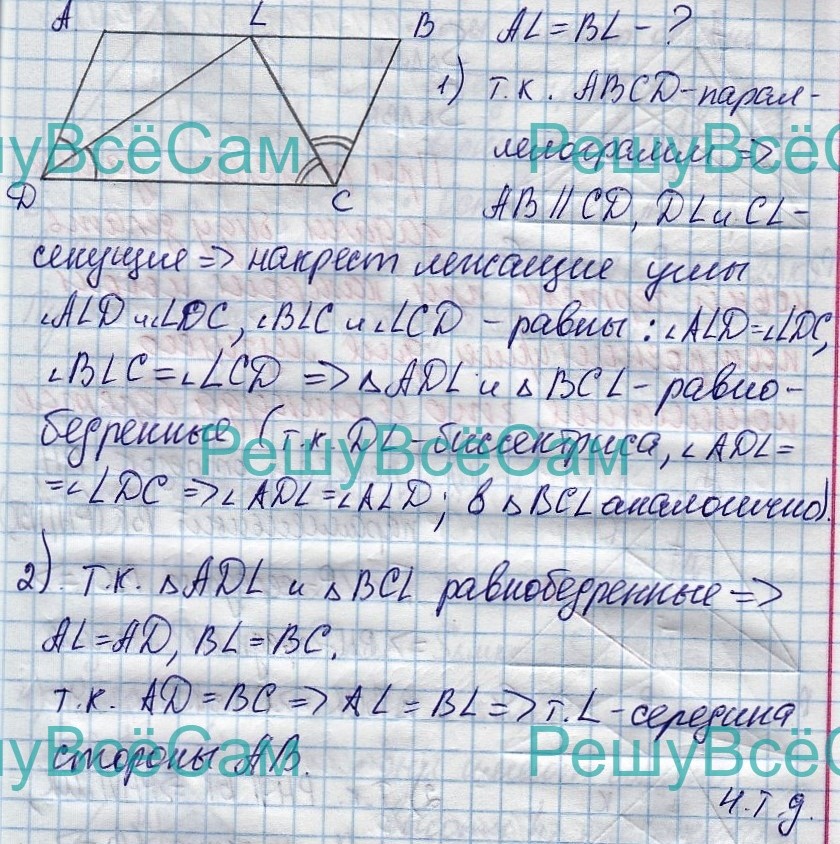 A L B AL = BL - ?
1) т.к. ABCD-парал-
лелограмм =>
D C AB || CD, DL и CL-
секущие => накрест лежащие углы
∠ALD и ∠LDC, ∠BLC и ∠LCD - равны : ∠ALD=∠LDC,
∠BLC = ∠LCD => △ADL и △BCL - равно-
бедренные (т.к. DL-биссектриса, ∠ADL=
=∠LDC => ∠ADL=∠ALD; в △BCL аналогично).
2) т.к. △ADL и △BCL равнобедренные =>
AL=AD, BL=BC.
т.к. AD = BC => AL = BL => т.L-середина
стороны AB.
ч.т.д.
РешуВсёСам
РешуВсёС
РешуВсёСам
РешуВсёСам
РешуВсёСам